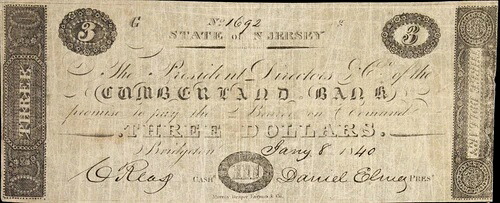 3 G No. 1692 3
STATE OF N JERSEY
The President Directors & Co. of the
CUMBERLAND BANK
promise to pay the Bearer on Demand
THREE DOLLARS.
Bridgeton Jany 8 1840
C Read CASHr. III Daniel Elmer PREST.
THREE